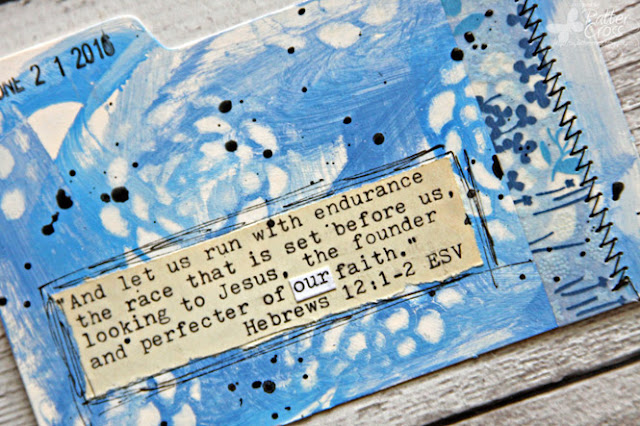 UNE 2 1 2016
Cross
"And let us run with endurance
the race that is set before us,
looking to Jesus, the founder
and perfecter of our faith."
Hebrews 12:1-2 ESV